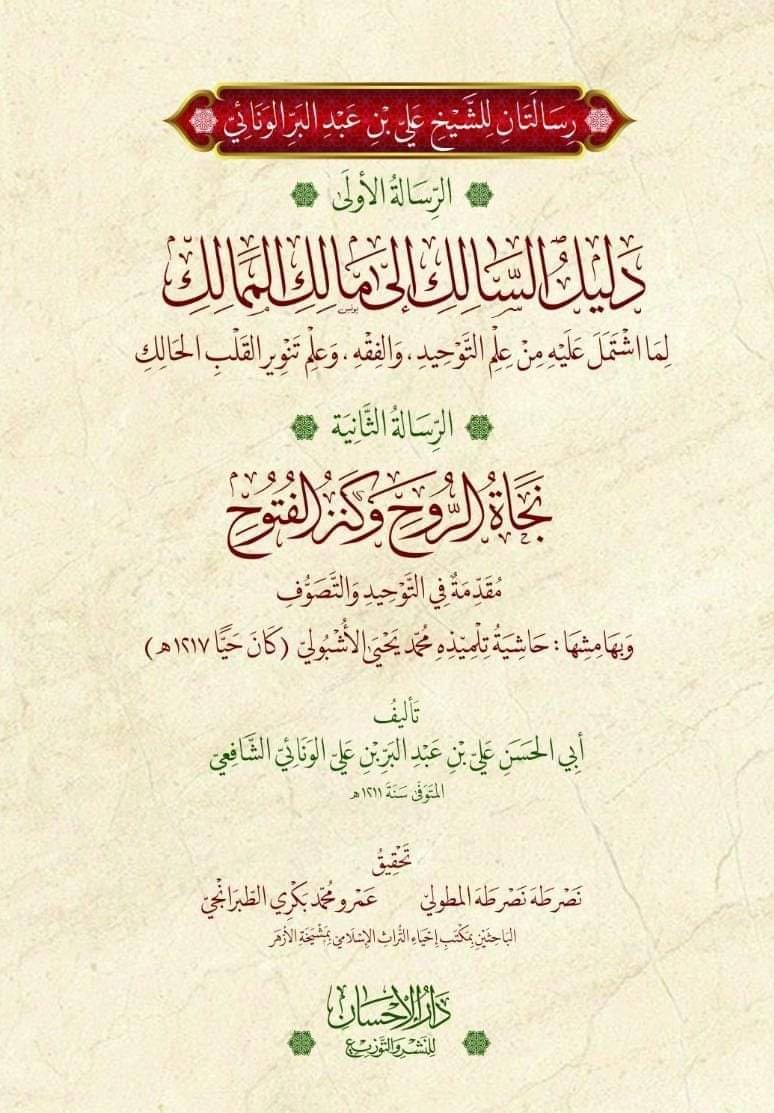 رِسَالَتَانِ لِلشَّيْخِ عَلِيِّ بْنِ عَبْدِ البَرِّ الوَنَائِيِّ
الرِّسَالَةُ الأُولَى
دَلِيلُ السَّالِكِ إِلَى مَالِكِ المَمَالِكِ
لِمَا اشْتَمَلَ عَلَيْهِ مِنْ عِلْمِ التَّوْحِيدِ، وَالفِقْهِ، وَعِلْمِ تَنْوِيرِ القَلْبِ الحَالِكِ
الرِّسَالَةُ الثَّانِيَة
نَجَاةُ الرُّوحِ وَكَنْزُ الفُتُوحِ
مُقَدِّمَةٌ فِي التَّوْحِيدِ وَالتَّصَوُّفِ
وَبِهَامِشِهَا: حَاشِيَةُ تِلْمِيذِهِ مُحَمَّد يَحْيَى الأُشْبُولِيّ (كَانَ حَيًّا ١٢١٧هـ)
تَأْلِيفُ
أَبِي الحَسَنِ عَلِيِّ بْنِ عَبْدِ البَرِّ بْنِ عَلِيّ الوَنَائِيّ الشَّافِعِيّ
المُتَوَفَّى سَنَةَ ١٢١١هـ
تَحْقِيقُ
نَصْر طَهَ نَصْر طَهَ المطولِيّ عَمْرو مُحَمَّد بَكْرِي الطَّبَرَانْجِيّ
البَاحِثَيْنِ بِمَكْتَبِ إِحْيَاءِ التُّرَاثِ الإِسْلَامِيّ بِمَشْيَخَةِ الأَزْهَر
دَارُ الإِحْسَان
لِلنَّشْرِ وَالتَّوْزِيعِ